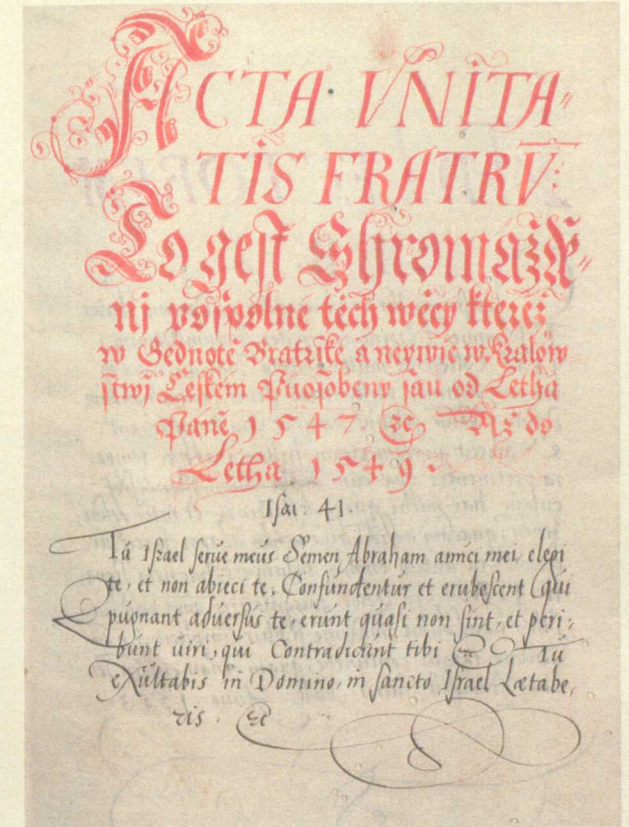 ACTA · VNITA=
TIS FRATRV̄:
To gest Shromážďe=
nj pospolne těch wěcy kterež
w Gednotě Bratrské a neywic w Kralow
stwj Českém Puosobeny sau od Letha
Páně 1547 &c Až do
Letha 1549
Isai 41.
Tu Israel serue meus Semen Abraham amici mei, elegi
te, et non abieci te. Confundentur et erubescent qui
pugnant aduersus te, erunt quasi non sint, et peri=
bunt uiri, qui Contradicunt tibi &c Tu
exultabis in Domino, in sancto Israel Lætabe,
ris. &c